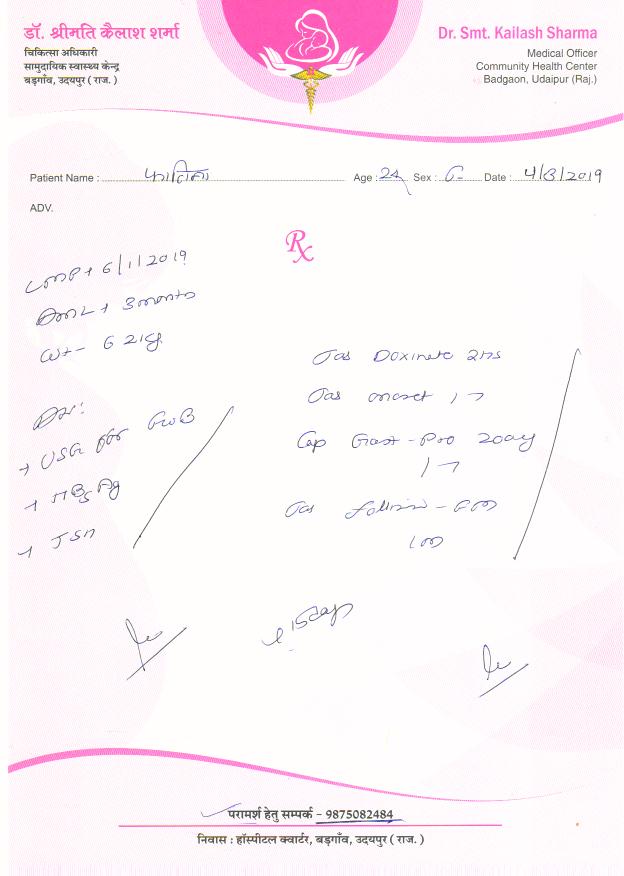 डॉ. श्रीमति कैलाश शर्मा
चिकित्सा अधिकारी
सामुदायिक स्वास्थ्य केन्द्र
बड़गाँव, उदयपुर ( राज. )
Dr. Smt. Kailash Sharma
Medical Officer
Community Health Center
Badgaon, Udaipur (Raj.)
Patient Name : Age : 24 Sex : F Date : 4/3/2019
ADV.
Rx
LMP + 6/1/2019
3 months
wt - 62 kg
→ USG for FWB
→ HBsAg
→ TSH
Tab Doxinate 2HS
Tab 1 →
Cap 20
1 →
Tab
15 days
परामर्श हेतु सम्पर्क – 9875082484
निवास : हॉस्पीटल क्वार्टर, बड़गाँव, उदयपुर ( राज. )